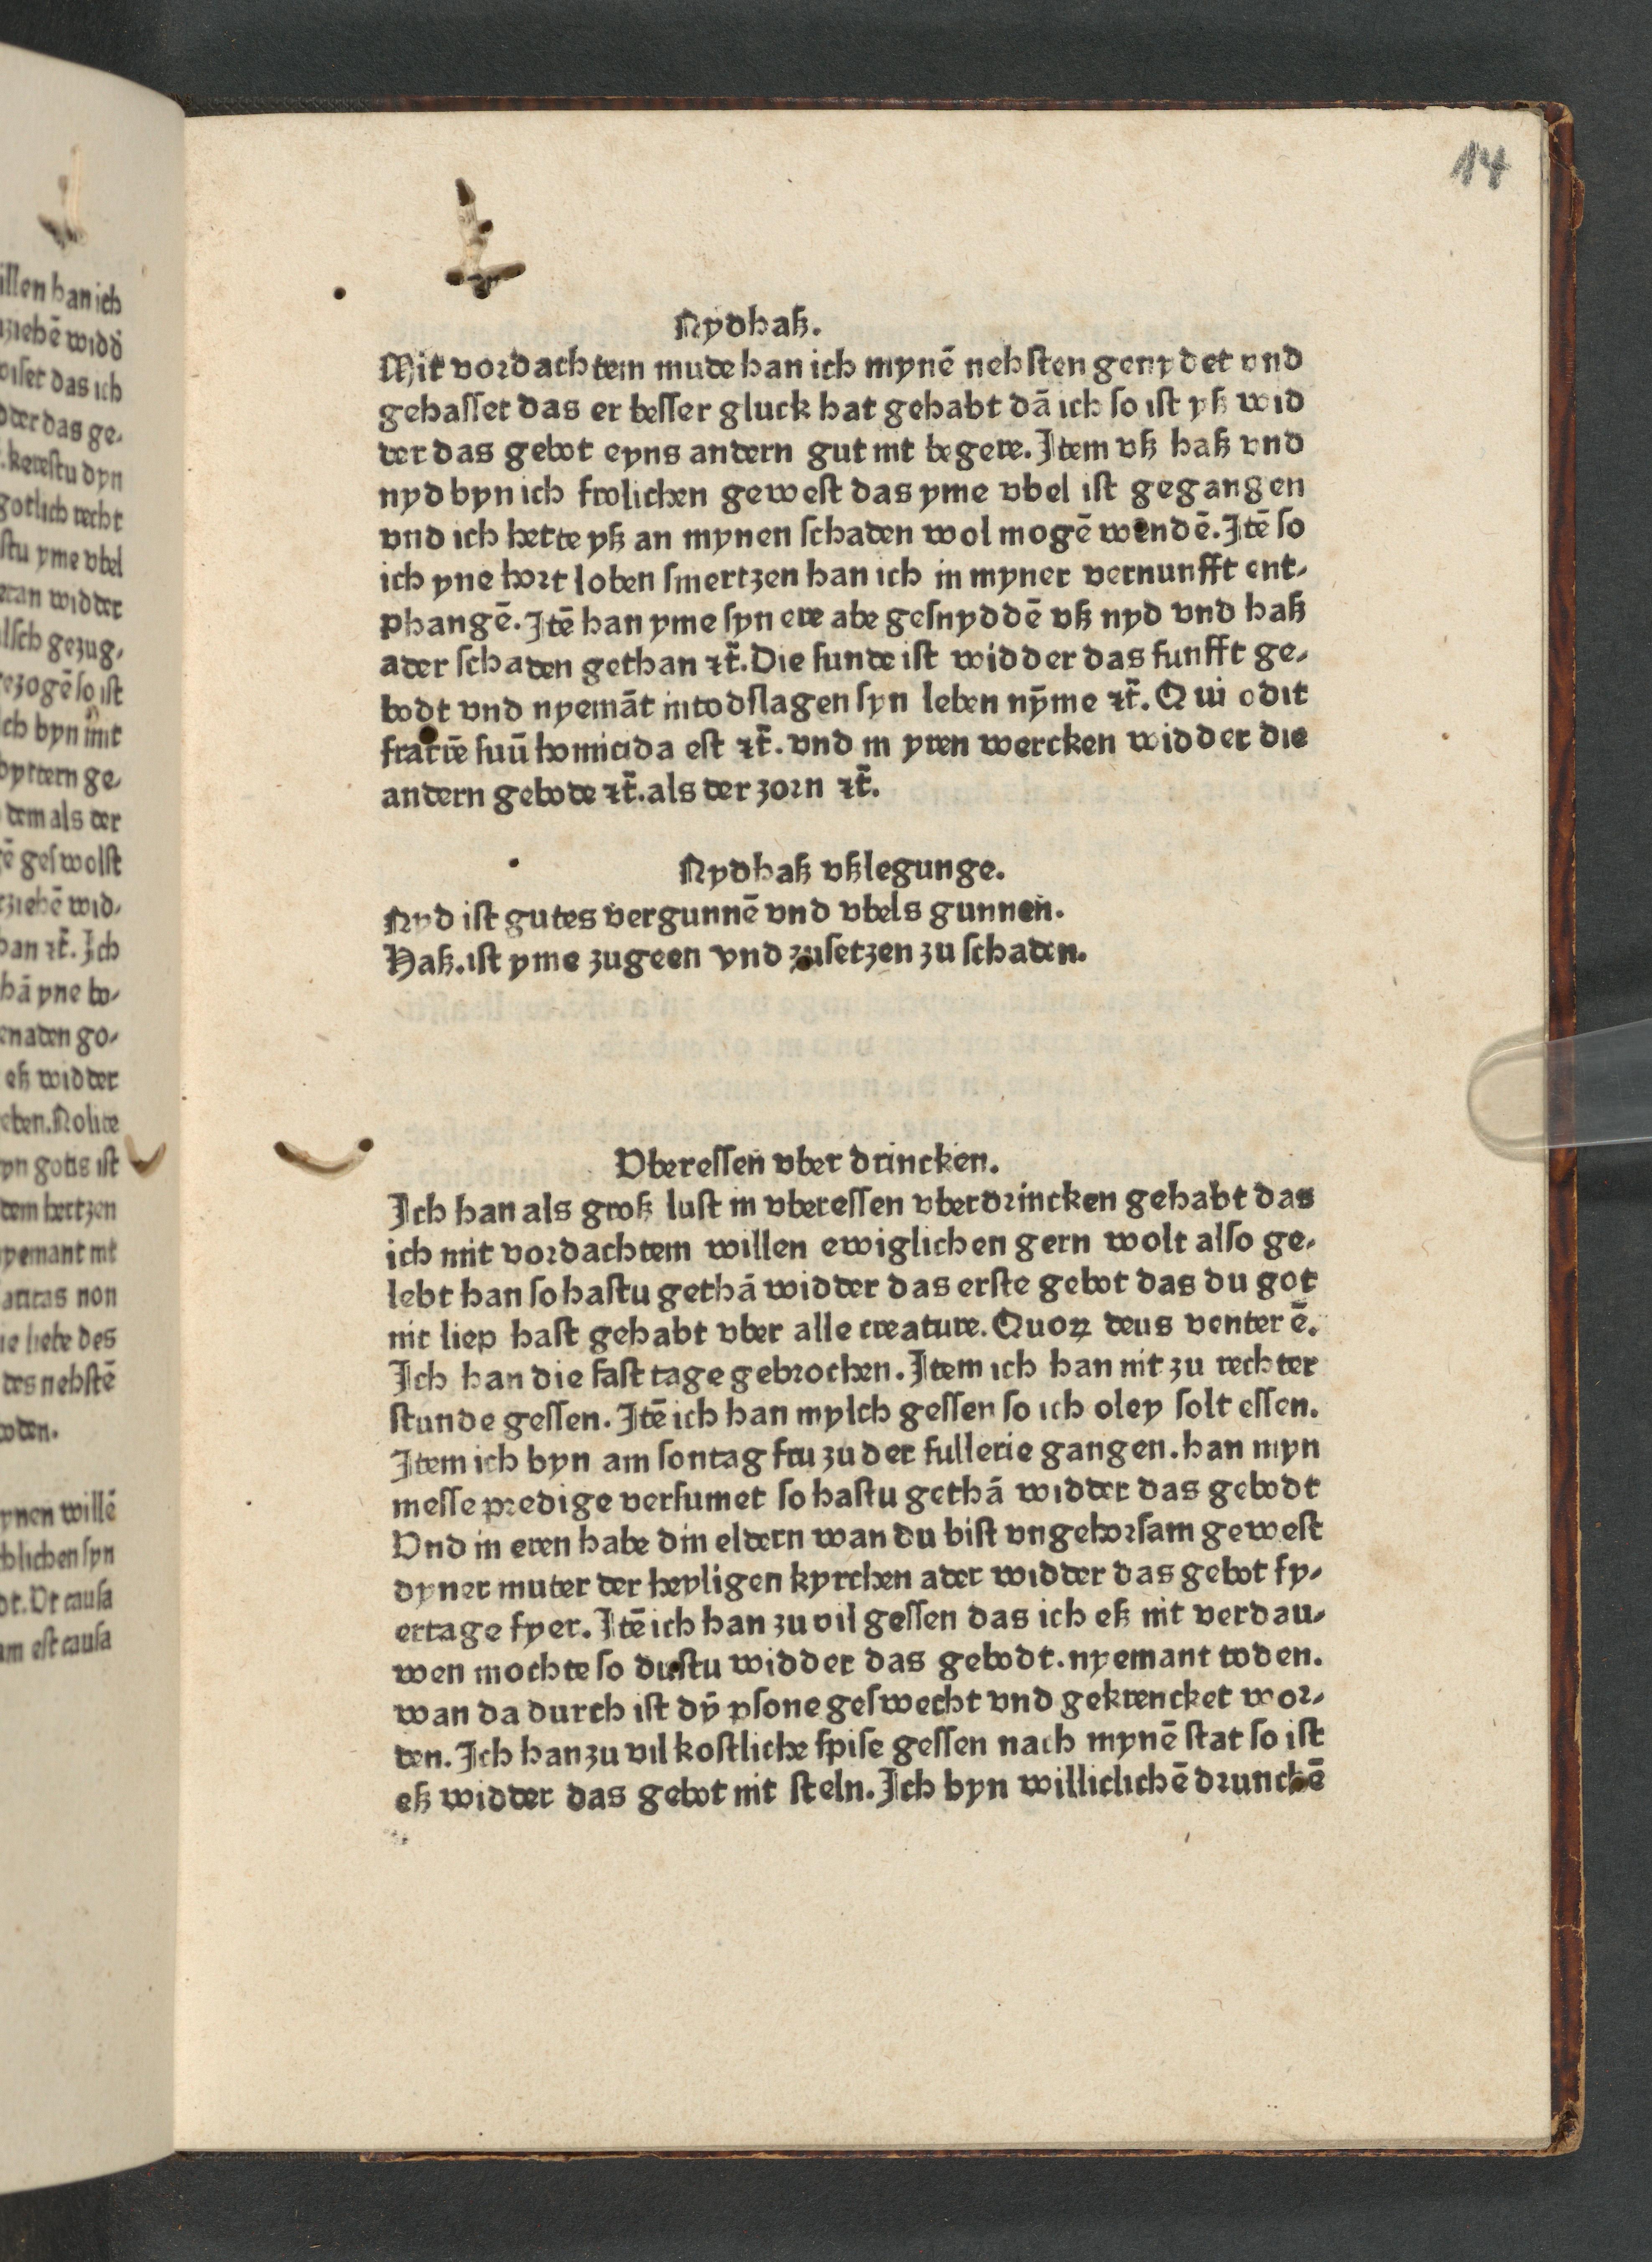 14
Nydhaß.
Mit vordachtem mude han ich mynē nehsten genydet vnd
gehasset das er besser gluck hat gehabt dā ich so ist yß wid
der das gebot eyns andern gut nit begere. Item vß haß vnd
nyd byn ich frolichen gewest das yme vbel ist gegangen
vnd ich hette yß an mynen schaden wol mogē wendē. Itē so
ich yne hort loben smertzen han ich in myner vernunfft ent⸗
phangē. Itē han yme syn ere abe gesnyddē vß nyd vnd haß
ader schaden gethan ⁊c̄. Die sunde ist widder das funfft ge⸗
bodt vnd nyemāt intodslagen syn leben nȳme ⁊c̄. Qui odit
fratrē suū homicida est ⁊c̄. vnd in yren wercken widder die
andern gebode ⁊c̄. als der zorn ⁊c̄.
Nydhaß vßlegunge.
Nyd ist gutes vergunnē vnd vbels gunnen.
Haß. ist yme zugeen vnd zusetzen zu schaden.
Vberessen vber drincken.
Ich han als groß lust in vberessen vberdrincken gehabt das
ich mit vordachtem willen ewiglichen gern wolt also ge⸗
lebt han so hastu gethā widder das erste gebot das du got
nit liep hast gehabt vber alle creature. Quoꝝ deus venter ē.
Ich han die fast tage gebrochen. Item ich han nit zu rechter
stunde gessen. Itē ich han mylch gessen so ich oley solt essen.
Item ich byn am sontag fru zu der fullerie gangen. han myn
messe predige versumet so hastu gethā widder das gebodt
Vnd in eren habe din eldern wan du bist vngehorsam gewest
dyner muter der heyligen kyrchen ader widder das gebot fy⸗
ertage fyer. Itē ich han zu vil gessen das ich eß nit verdau⸗
wen mochte so dustu widder das gebodt. nyemant toden.
wan da durch ist dȳ ꝑsone geswecht vnd gekrencket wor⸗
den. Ich han zu vil kostliche spise gessen nach mynē stat so ist
eß widder das gebot nit steln. Ich byn williclichē drunckē